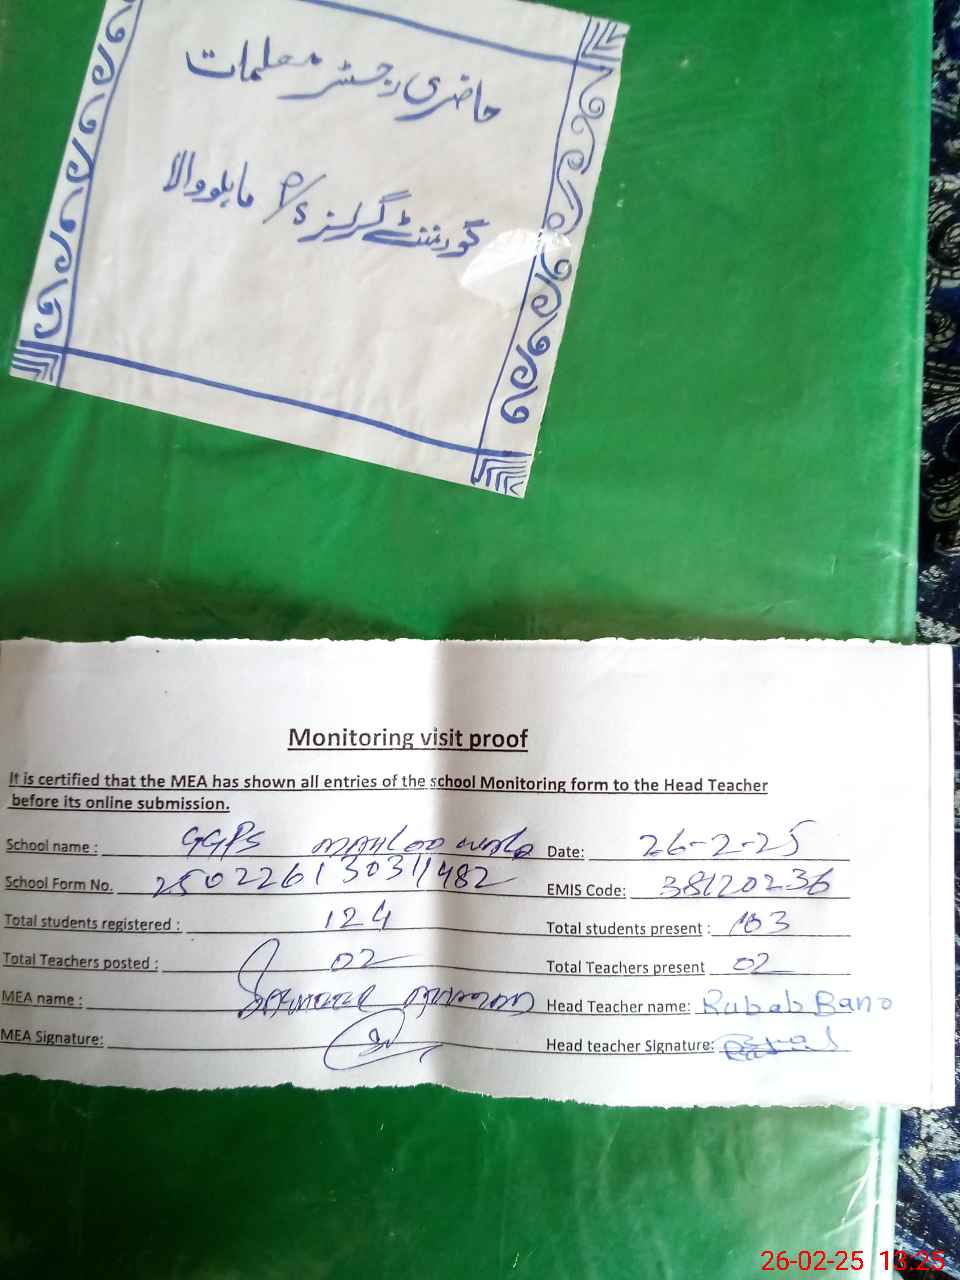 حاضری رجسٹر معلمات
گورنمنٹ گرلز P/S ماہلووالا
Monitoring visit proof
It is certified that the MEA has shown all entries of the school Monitoring form to the Head Teacher
before its online submission.
School name : GGPS MAHLOO WALA Date: 26-2-25
School Form No. 25022613031482 EMIS Code: 38120236
Total students registered : 124 Total students present : 103
Total Teachers posted : 02 Total Teachers present 02
MEA name : Head Teacher name: Rubab Bano
MEA Signature: Head teacher Signature:
26-02-25 13:25